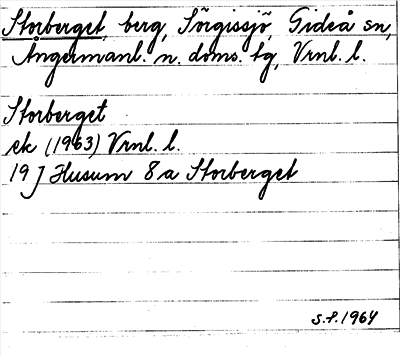 Storberget, berg, Sörgissjö, Gideå sn,
Ångermanl. n. doms. tg, Vrnl. l.
Storberget
ek (1963) Vrnl. l.
19 J Husum 8 a Storberget
S.P. 1964